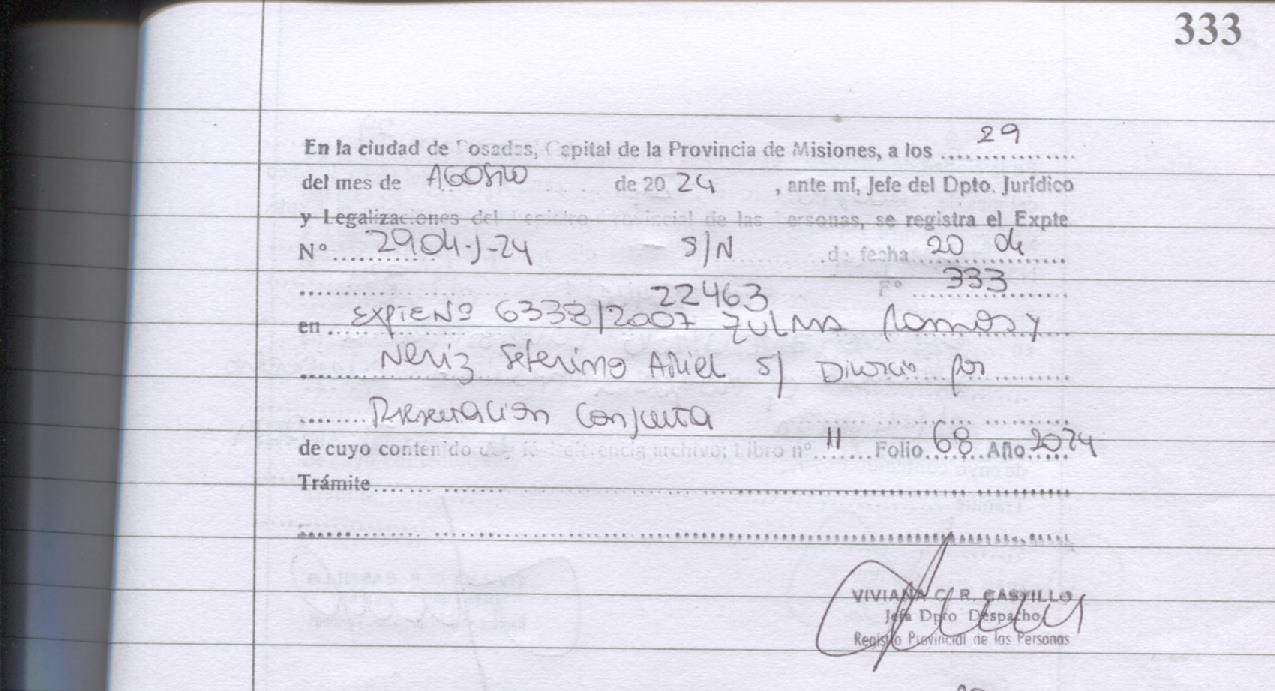 333
En la ciudad de Posadas, Capital de la Provincia de Misiones, a los 29
del mes de AGOSTO de 2024, ante mí, Jefe del Dpto. Jurídico
y Legalizaciones del Registro Provincial de las Personas, se registra el Expte
Nº 2904-J-24 S/N de fecha 20 de
22463 Fº 333
en EXPTE Nº 6338/2007 ZULMA Ramos y
Neriz Seferino Ariel S/ Divorcio por
Presentación Conjunta
de cuyo contenido doy fe. Referencia archivo: Libro nº 11 Folio 68 Año 2024
Trámite
VIVIANA C. R. CASTILLO
Jefa Dpto Despacho
Registro Provincial de las Personas